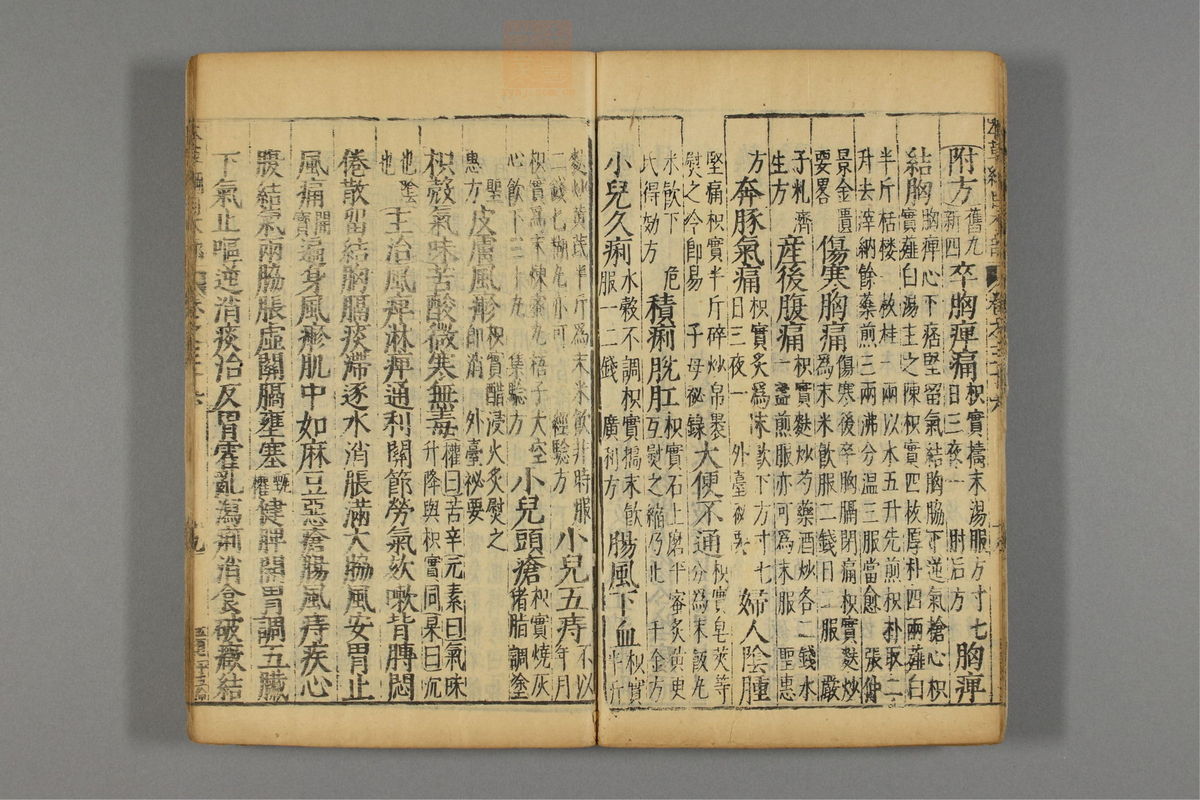 附方舊九新四卒胸痹痛枳實擣末湯服方寸匕日三夜一 肘后方胸痹
結胸胸痹心下痞堅留氣結胸脇下逆氣搶心枳實薤白湯主之陳枳實四枚厚朴四兩薤白
半斤栝樓一枚桂一兩以水五升先煎枳朴取二升去滓納餘藥煎三兩沸分溫三服當愈 張仲
景金匱要畧傷寒胸痛傷寒後卒胸膈閉痛枳實麩炒爲末米飲服二錢日二服 嚴
子礼濟生方產後腹痛枳實麩炒芍藥酒炒各二錢水一盞煎服亦可爲末服 聖惠
方奔豚氣痛枳實炙爲末飲下方寸匕日三夜一 外臺秘要婦人陰腫
堅痛枳實半斤碎炒帛裹熨之冷即易 子母秘錄大便不通枳實皂莢等分爲末飯丸
米飲下 危氏得効方積痢脫肛枳實石上磨平蜜炙黃更互熨之縮乃止 千金方
小兒久痢水穀不調枳實擣末飲服一二錢 廣利方腸風下血枳實半斤
麩炒黃茋半斤爲末米飲非時服二錢匕糊丸亦可 經驗方小兒五痔不以年月
枳實爲末煉蜜丸梧子大空心飲下三十丸 集驗方小兒頭瘡枳實燒灰猪脂調塗
聖惠方皮膚風𤺋枳實醋浸火炙熨之即消 外臺秘要
枳殼氣味苦酸微寒無毒權曰苦辛元素曰氣味升降與枳實同杲曰沉
也陰也主治風痒淋痺通利關節勞氣欬嗽背膊悶
倦散留結胸膈痰滯逐水消脹滿大腸風安胃止
風痛開寶遍身風疹肌中如麻豆惡瘡腸風痔疾心
腹結氣兩脇脹虛關膈壅塞甄權健脾開胃調五臟
下氣止嘔逆消痰治反胃霍亂瀉痢消食破癥結